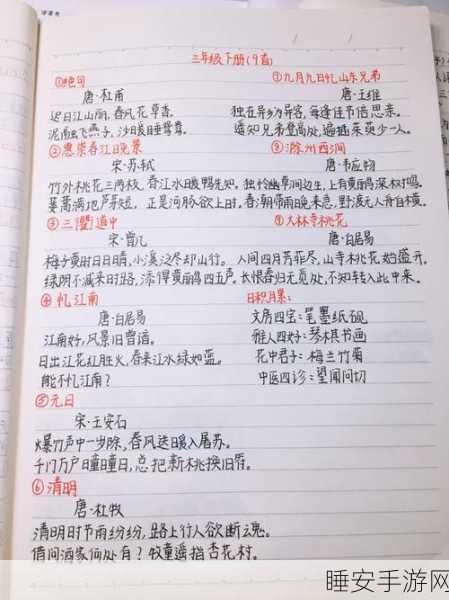 三年级下册(9首)
①绝句
唐·杜甫
迟日江山丽，春风花草香。
泥融飞燕子，沙暖睡鸳鸯。
②惠崇春江晚景
宋·苏轼
竹外桃花三两枝，春江水暖鸭先知。
蒌蒿满地芦芽短，正是河豚欲上时。
③三衢道中
宋·曾几
梅子黄时日日晴，小溪泛尽却山行。
绿阴不减来时路，添得黄鹂四五声。
④忆江南
唐·白居易
江南好，风景旧曾谙。
日出江花红胜火，春来江水绿如蓝。
能不忆江南？
⑤元日
宋·王安石
爆竹声中一岁除，春风送暖入屠苏。
千门万户曈曈日，总把新桃换旧符。
⑥清明
唐·杜牧
清明时节雨纷纷，路上行人欲断魂。
借问酒家何处有？牧童遥指杏花村。
⑦九月九日忆山东兄弟
唐·王维
独在异乡为异客，每逢佳节倍思亲。
遥知兄弟登高处，遍插茱萸少一人。
⑧滁州西涧
唐·韦应物
独怜幽草涧边生，上有黄鹂深树鸣。
春潮带雨晚来急，野渡无人舟自横。
⑨大林寺桃花
唐·白居易
人间四月芳菲尽，山寺桃花始盛开。
长恨春归无觅处，不知转入此中来。
日积月累：
文房四宝：笔墨纸砚
雅人四好：琴棋书画
花中君子：梅兰竹菊
中医四诊：望闻问切
睡安手游网